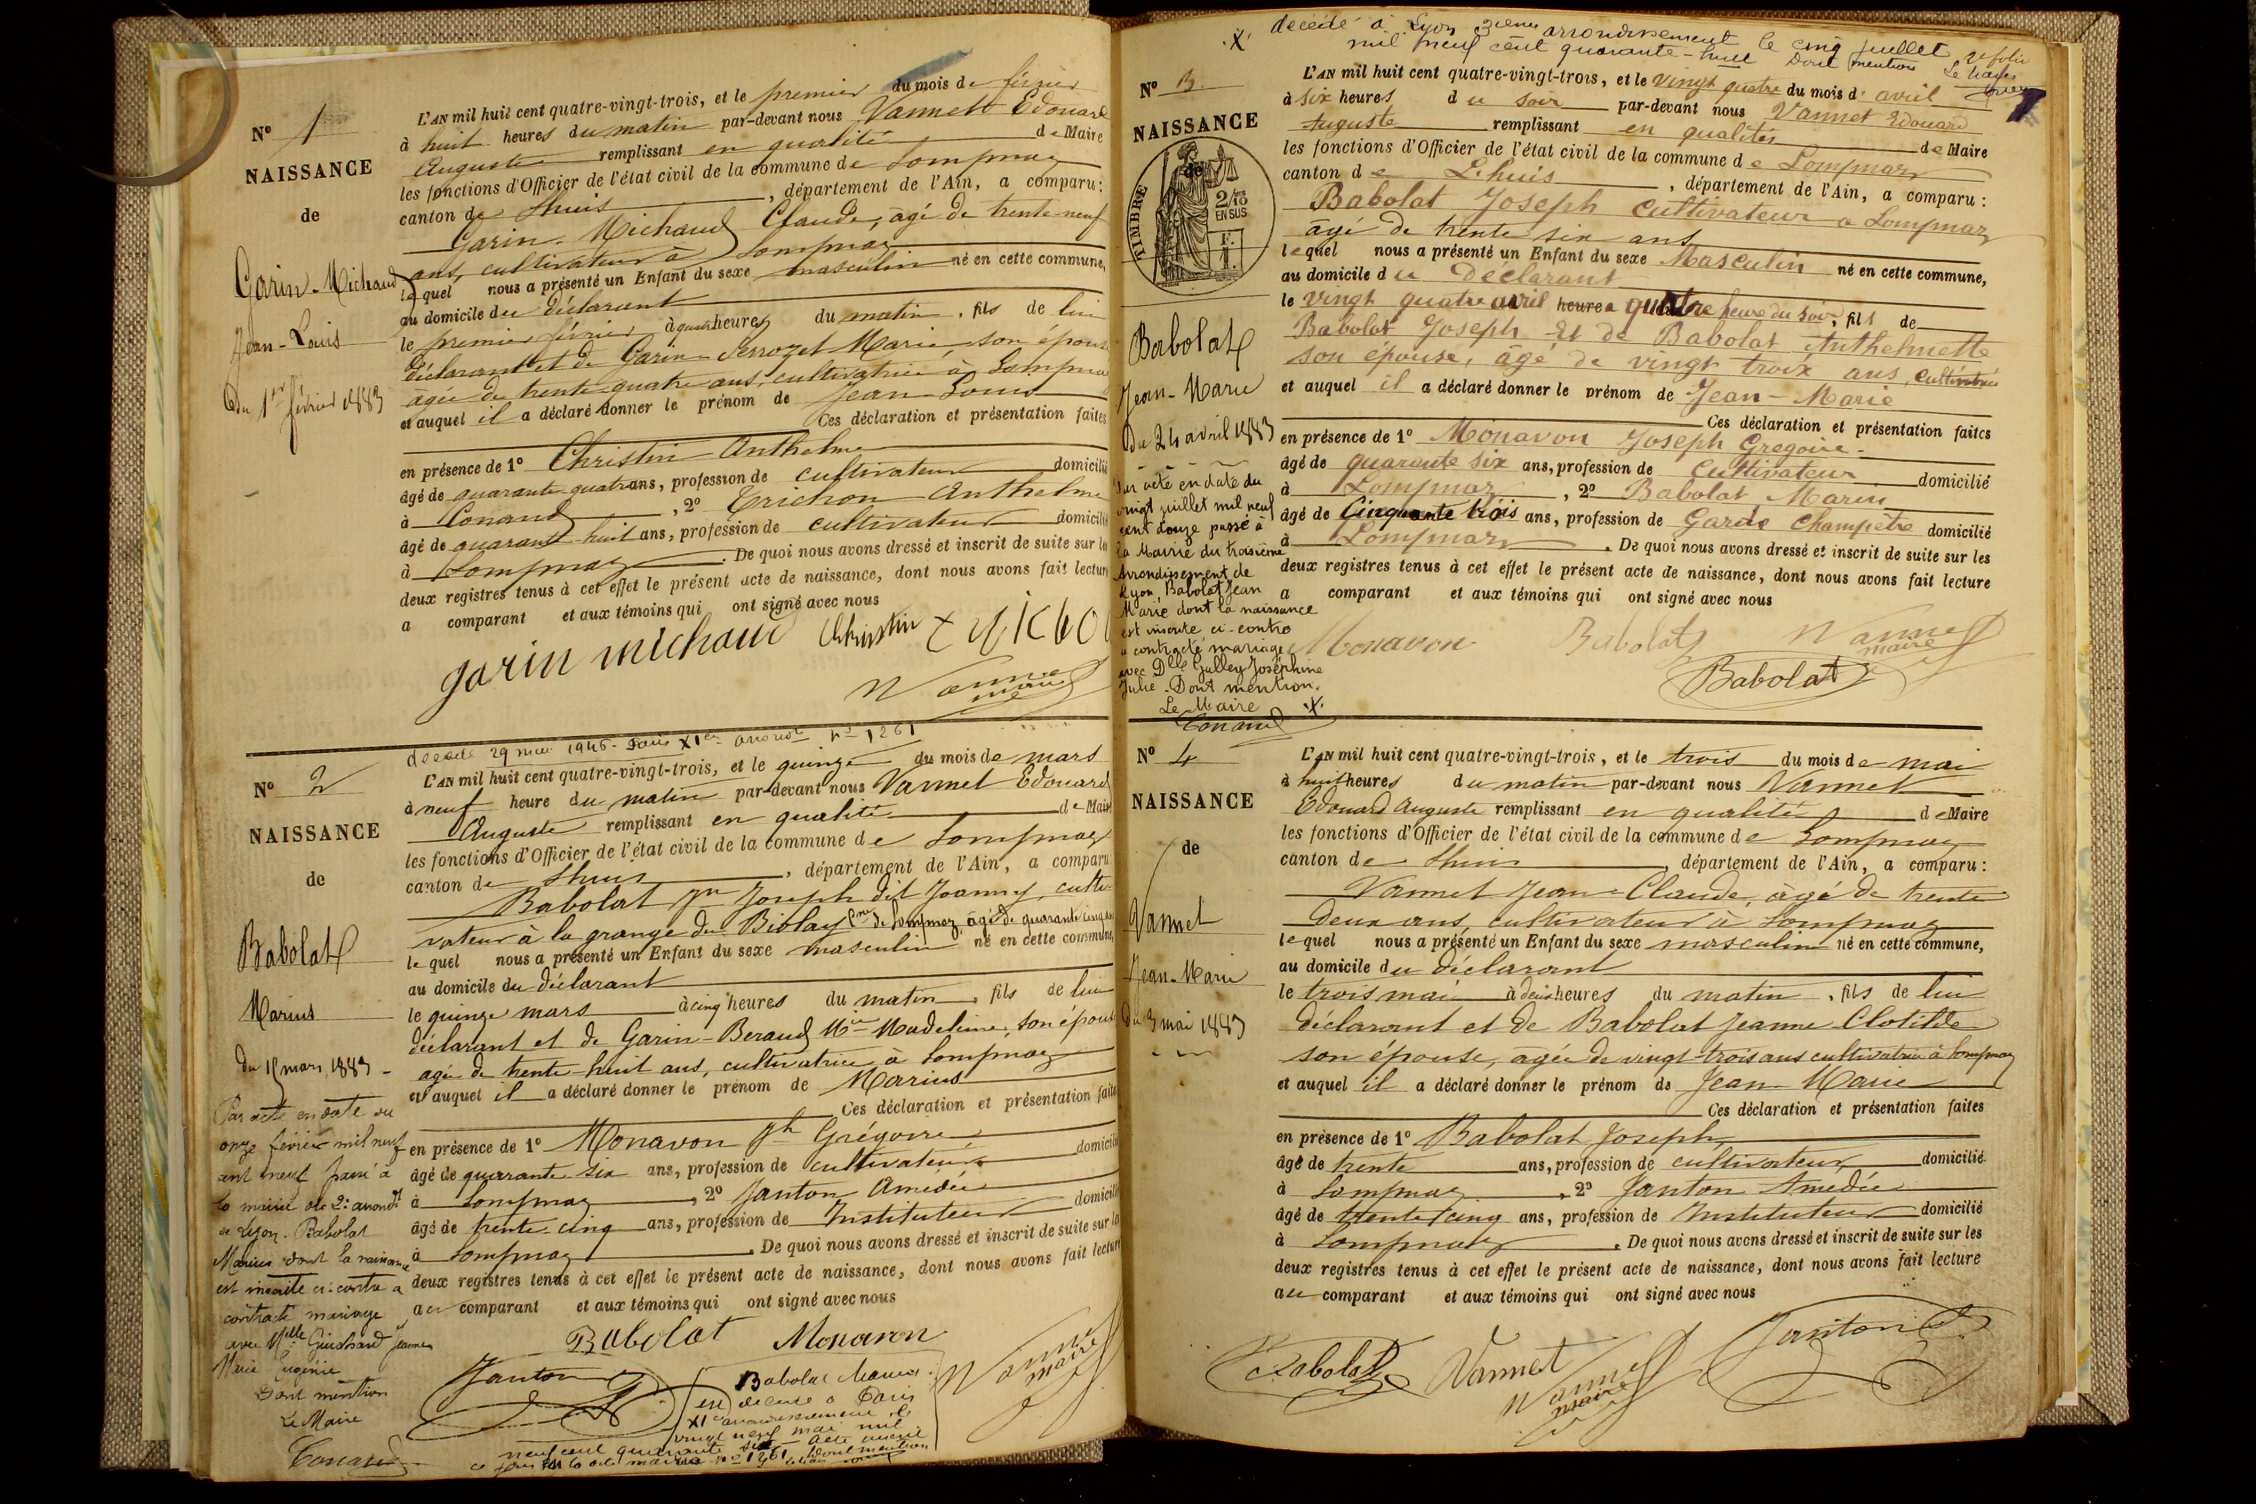 Nº 1
NAISSANCE
de
Garin-Michaud
Jean-Louis
du 1er février 1883
L'AN mil huit cent quatre-vingt-trois, et le premier du mois de février
à huit heures du matin par-devant nous Vannet Edouard
Auguste remplissant en qualité de Maire
les fonctions d'Officier de l'état civil de la commune de Lompnaz
canton de Lhuis, département de l'Ain, a comparu :
Garin-Michaud Claude, âgé de trente-neuf
ans, cultivateur à Lompnaz
lequel nous a présenté un Enfant du sexe masculin né en cette commune,
au domicile du déclarant
le premier février à quatre heures du matin, fils de lui
déclarant et de Garin-Perrozet Marie, son épouse
agée de trente quatre ans, cultivatrice à Lompnaz
et auquel il a déclaré donner le prénom de Jean Louis
Ces déclaration et présentation faites
en présence de 1º Christin Anthelme
âgé de quarante quatre ans, profession de cultivateur domicilié
à Conand, 2º Trichon Anthelme
âgé de quarante-huit ans, profession de cultivateur domicilié
à Lompnaz. De quoi nous avons dressé et inscrit de suite sur les
deux registres tenus à cet effet le présent acte de naissance, dont nous avons fait lecture
a comparant et aux témoins qui ont signé avec nous
garin michaud Christin
Vannet
maire
décédé 29 mai 1946 - Paris XIe arrondt nº 1261
Nº 2
NAISSANCE
de
Babolat
Marius
du 15 mars 1883
Par acte en date du
onze février mil neuf
cent neuf passé à
la mairie du 2e arrondt
de Lyon, Babolat
Marius dont la naissance
est inscrite ci-contre a
contracté mariage
avec Mlle Guichard Jeanne
Marie Eugénie
Dont mention
Le Maire
Conand
L'AN mil huit cent quatre-vingt-trois, et le quinze du mois de mars
à neuf heure du matin par-devant nous Vannet Edouard
Auguste remplissant en qualité de Maire
les fonctions d'Officier de l'état civil de la commune de Lompnaz
canton de Lhuis, département de l'Ain, a comparu
Babolat Jn Joseph dit Joanny, culti-
vateur à la grange du Biolay Cne de Lompnaz, âgé de quarante cinq ans
lequel nous a présenté un Enfant du sexe masculin né en cette commune,
au domicile du déclarant
le quinze mars à cinq heures du matin, fils de lui
déclarant et de Garin-Beraud Mie Madeleine, son épouse
agée de trente huit ans, cultivatrice à Lompnaz
et auquel il a déclaré donner le prénom de Marius
Ces déclaration et présentation faites
en présence de 1º Monavon Jh Grégoire
âgé de quarante six ans, profession de cultivateur domicilié
à Lompnaz, 2º Janton Amédée
âgé de trente-cinq ans, profession de Instituteur domicilié
à Lompnaz. De quoi nous avons dressé et inscrit de suite sur les
deux registres tenus à cet effet le présent acte de naissance, dont nous avons fait lecture
au comparant et aux témoins qui ont signé avec nous
Babolat Monavon
Janton Vannet
maire
Babolat Marius
est décédé à Paris
XIe arrondissement le
vingt neuf mai mil
neuf cent quarante six
X décédé à Lyon 3ieme arrondissement le cinq juillet
mil neuf cent quarante-huit Dont mention
7
Nº 3
NAISSANCE
de
TIMBRE
2/10
EN SUS
Babolat
Jean-Marie
du 24 avril 1883
Par acte en date du
vingt juillet mil neuf
cent douze passé à
la Mairie du troisième
arrondissement de
Lyon, Babolat Jean
Marie dont la naissance
est inscrite ci-contre
a contracté mariage
avec Dlle Gulley Joséphine
Julie - Dont mention.
Le Maire X
Conand
L'AN mil huit cent quatre-vingt-trois, et le vingt quatre du mois d' avril
à six heures du soir par-devant nous Vannet Edouard
Auguste remplissant en qualités de Maire
les fonctions d'Officier de l'état civil de la commune de Lompnaz
canton de Lhuis, département de l'Ain, a comparu :
Babolat Joseph cultivateur a Lompnaz
âgé de trente six ans
lequel nous a présenté un Enfant du sexe Masculin né en cette commune,
au domicile du Déclarant
le vingt quatre avril heure a quatre heure du soir, fils de
Babolat Joseph Et de Babolat Anthelmette
son épouse, âgé de vingt troix ans, cultivatrice
et auquel il a déclaré donner le prénom de Jean-Marie
Ces déclaration et présentation faites
en présence de 1º Monavon Joseph Gregoire
âgé de quarante six ans, profession de Cultivateur domicilié
à Lompnaz, 2º Babolat Marin
âgé de Cinquante trois ans, profession de Garde Champetre domicilié
à Lompnaz. De quoi nous avons dressé et inscrit de suite sur les
deux registres tenus à cet effet le présent acte de naissance, dont nous avons fait lecture
a comparant et aux témoins qui ont signé avec nous
Monavon Babolat Vannet
maire
Babolat
Nº 4
NAISSANCE
de
Vannet
Jean-Marie
du 3 mai 1883
L'AN mil huit cent quatre-vingt-trois, et le trois du mois de mai
à huit heures du matin par-devant nous Vannet
Edouard Auguste remplissant en qualité de Maire
les fonctions d'Officier de l'état civil de la commune de Lompnaz
canton de Lhuis, département de l'Ain, a comparu :
Vannet Jean-Claude, âgé de trente
deux ans, cultivateur à Lompnaz
lequel nous a présenté un Enfant du sexe masculin né en cette commune,
au domicile du déclarant
le trois mai à deux heures du matin, fils de lui
déclarant et de Babolat Jeanne Clotilde
son épouse, agée de vingt-trois ans cultivatrice à Lompnaz
et auquel il a déclaré donner le prénom de Jean Marie
Ces déclaration et présentation faites
en présence de 1º Babolat Joseph
âgé de trente ans, profession de cultivateur domicilié
à Lompnaz, 2º Janton Amédée
âgé de trente cinq ans, profession de Instituteur domicilié
à Lompnaz. De quoi nous avons dressé et inscrit de suite sur les
deux registres tenus à cet effet le présent acte de naissance, dont nous avons fait lecture
au comparant et aux témoins qui ont signé avec nous
Babolat Vannet Janton
Vannet
maire